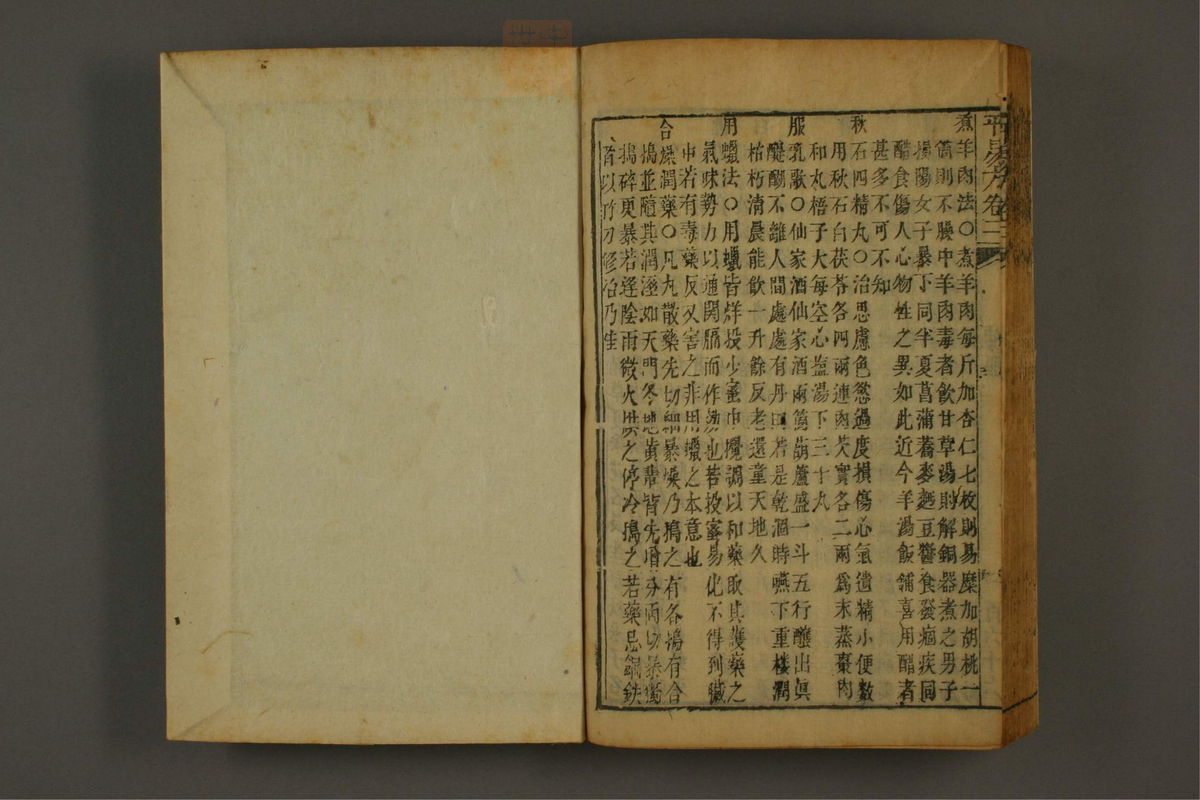 平易方卷三
煮羊肉法○煮羊肉每斤加杏仁七枚則易糜加胡桃一
箇則不臊中羊肉毒者飲甘草湯則解銅器煮之男子
損陽女子暴下同半夏菖蒲蕎麥麪豆醬食發痼疾同
醋食傷人心物性之異如此近今羊湯飯舖喜用醋者
甚多不可不知
秋石四精丸○治思慮色慾過度損傷心氣遺精小便數
用秋石白茯苓各四兩連肉芡實各二兩爲末蒸棗肉
和丸梧子大每空心塩湯下三十丸
服乳歌○仙家酒仙家酒兩箇葫蘆盛一斗五行釀出眞
醍醐不離人間處處有丹田若是乾涸時嚥下重樓潤
枯朽淸晨能飲一升餘反老還童天地久
用蠟法○用蠟皆烊投少蜜中攪調以和藥取其護藥之
氣味勢力以通関膈而作効也若投蜜易化不得到臟
中若有毒藥反又害之非用蠟之本意也
合燥潤藥○凡丸散藥先切細暴燥乃搗之有各搗有合
搗並隨其潤溼如天門冬地黃輩皆先增分兩切暴
搗碎更暴若逢陰雨微火烘之停冷搗之若藥忌銅鉄
者以竹刀修治乃佳